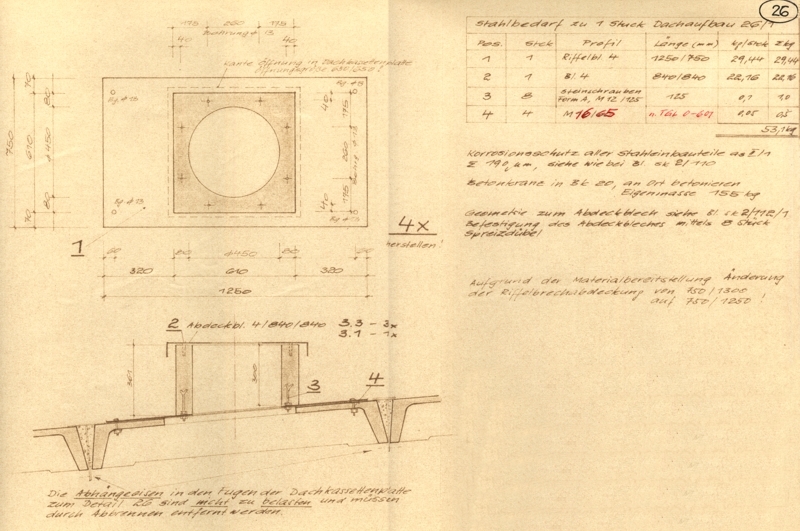 26
Stahlbedarf zu 1 Stück Dachaufbau 26/1
Pos. Stck Profil Länge (mm) kp/Stck Σ kg
1 1 Riffelbl. 4 1250/750 29,44 29,44
2 1 Bl. 4 840/840 22,16 22,16
3 8 Steinschrauben Form A, M 12/125 125 0,1 1,0
4 4 M 16/65 n. TGL 0-601 0,05 0,5
53,1 kg
Korrosionsschutz aller Stahleinbauteile
siehe wie bei Bl. sk 2/110
Betonkränze in Bk 20, an Ort betonieren
Eigenmasse 155 kg
Geometrie zum Abdeckblech siehe Bl. sk 2/112/1
Befestigung des Abdeckbleches mittels 8 Stück
Spreizdübel
Aufgrund der Materialbereitstellung Änderung
der Riffelblechabdeckung von 750/1300
auf 750/1250 !
175 260 175
40 40
Kante Öffnung in Dachkassettenplatte
750
70 610 70
80 ϕ450 80
40 175
260
40 175
1
4x
herstellen!
80 ϕ450 80
320 610 320
1250
2 Abdeckbl. 4/840/840
3.3 - 3x
3.1 - 1x
361
300
3
4
Die Abhängeeisen in den Fugen der Dachkassettenplatte
zum Detail 26 sind nicht zu belasten und müssen
durch Abbrennen entfernt werden.